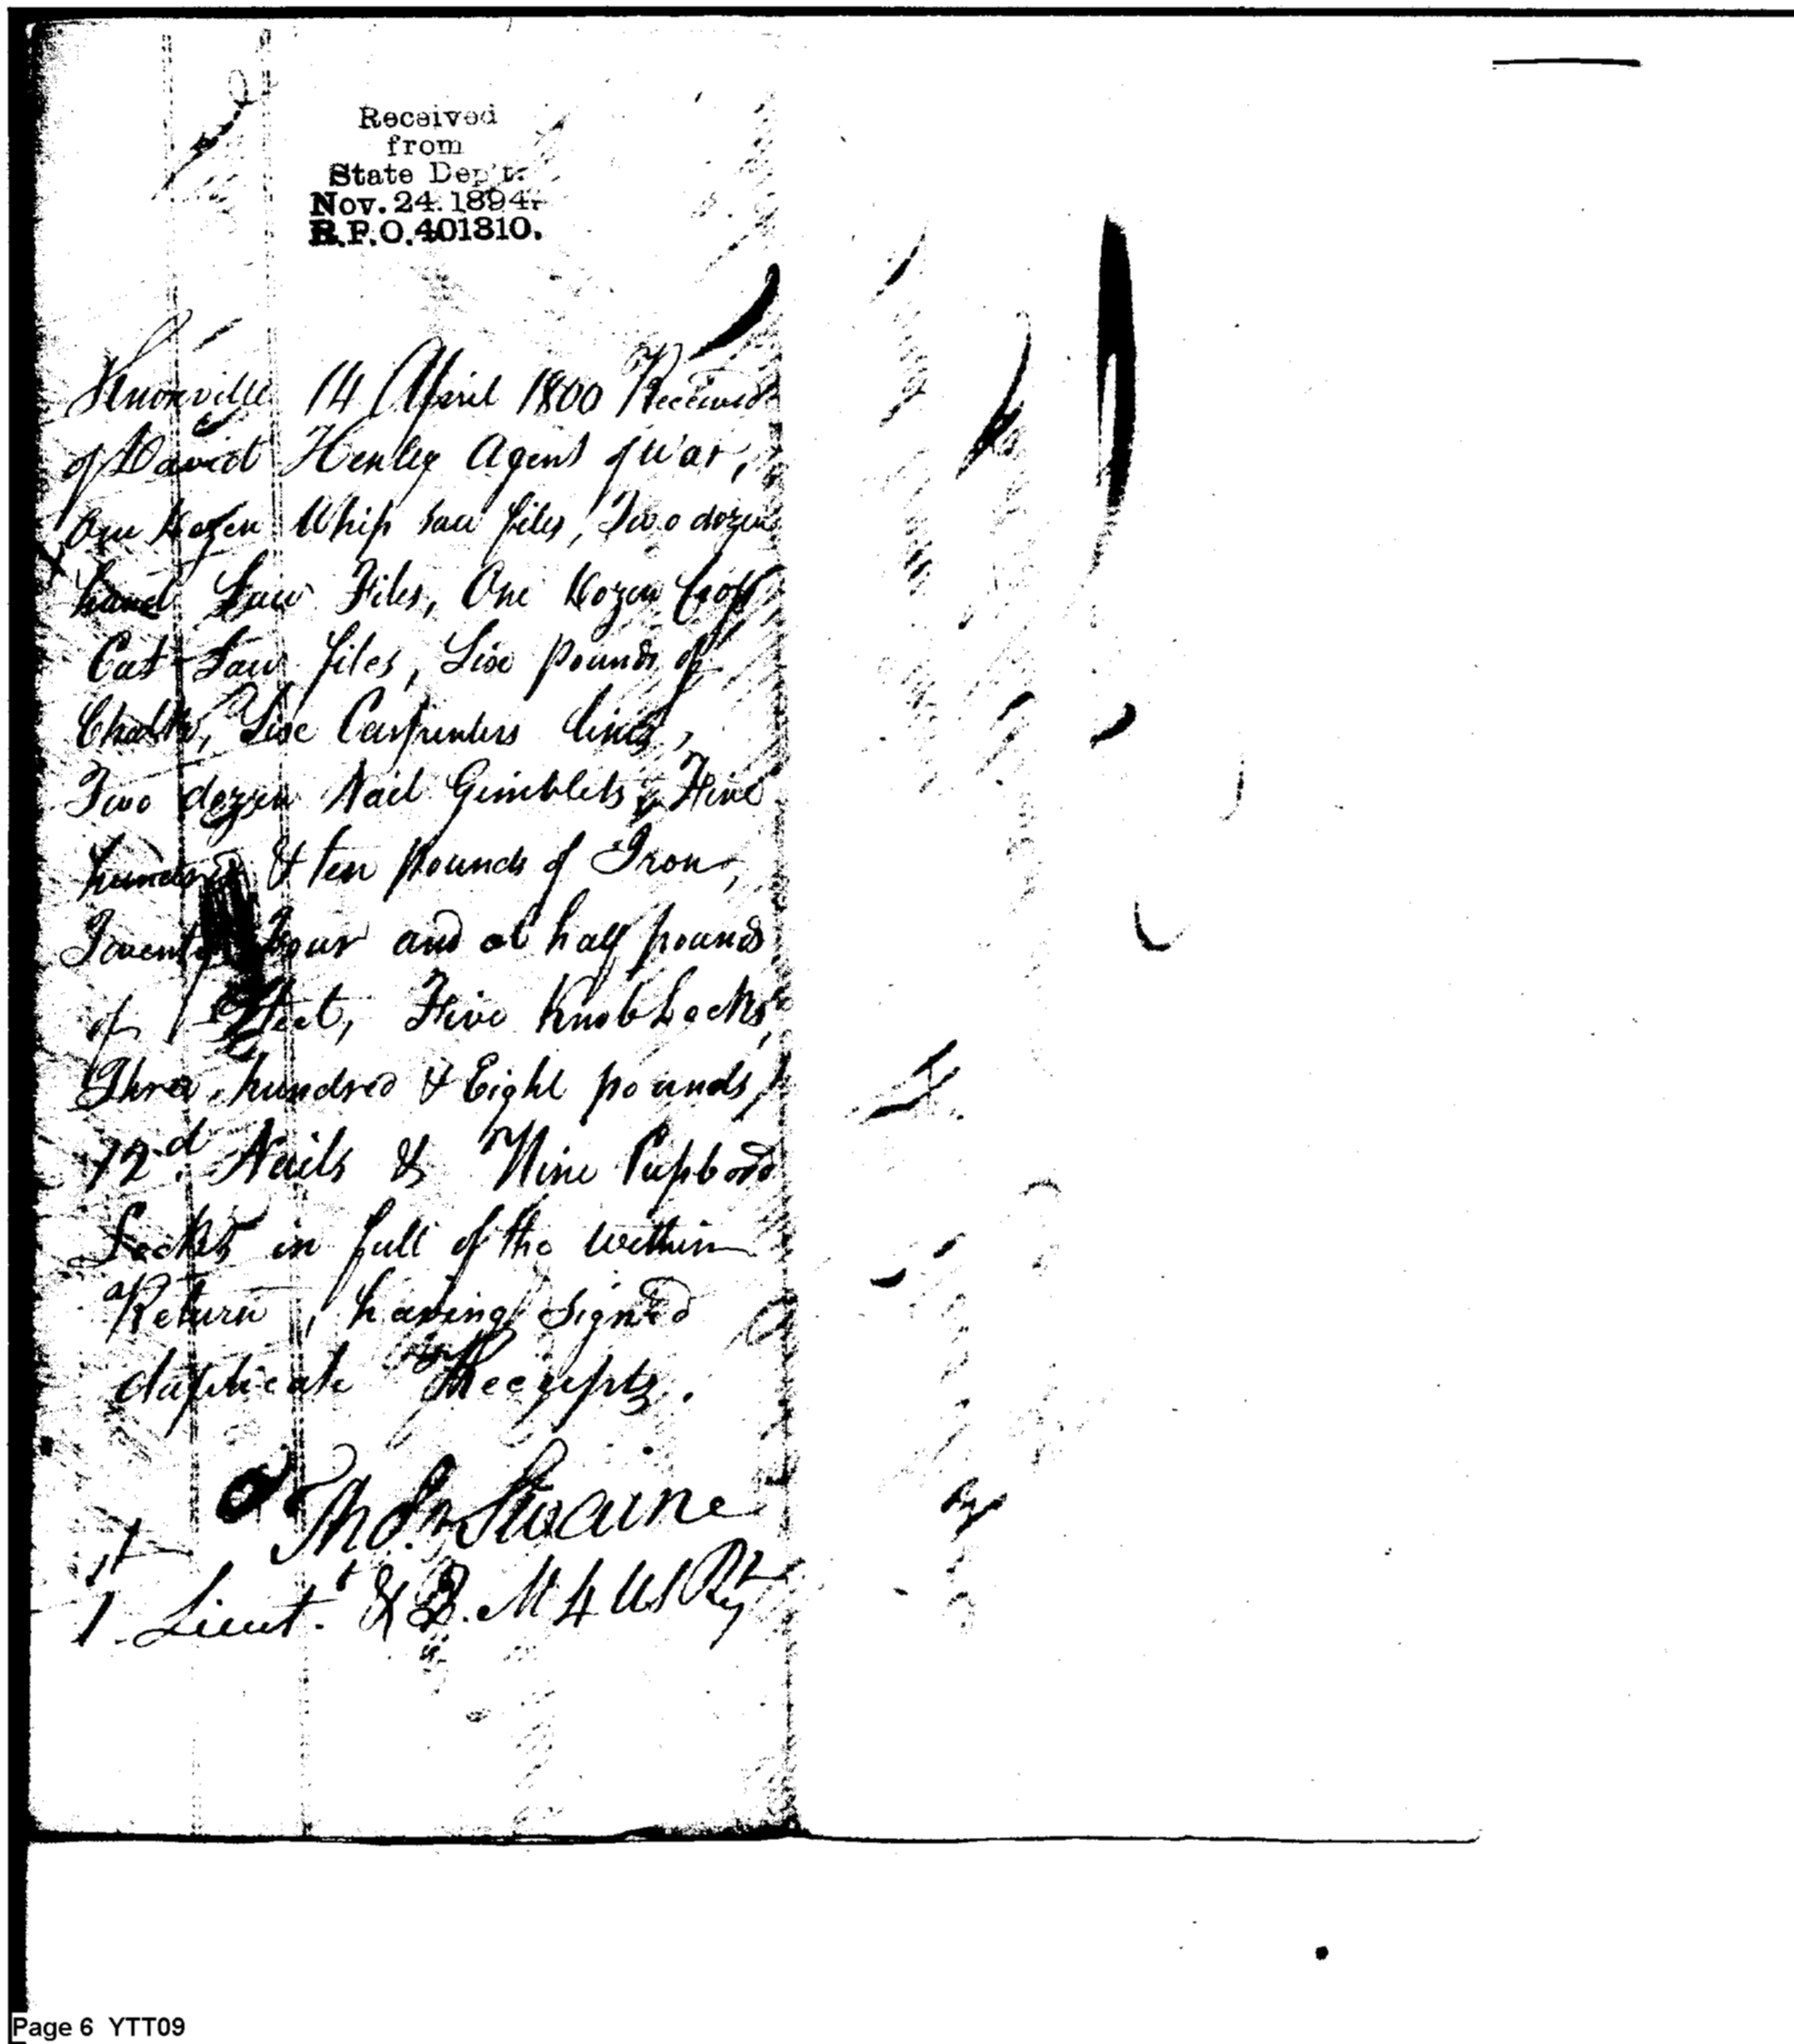 Received
from
State Dep't.
Nov. 24. 1894.
R.P.O. 401310.
Knoxville 14 April 1800 Received
of David Henley Agent of War,
One Dozen Whip Saw files, Two dozen
hand Saw Files, One Dozen Cross
Cut Saw files, Six Pounds of
Chalk, Six Carpenters lines,
Two dozen Nail Gimblets, Five
hundred & ten Pounds of Iron,
Twenty Four and a half pounds
of Steel, Five Knob Locks,
Three hundred & Eight pounds
12d. Nails & Nine Cupbord
Locks in full of the within
Return, having Signed
duplicate Receipts.
Thos. Swaine
1. Lieut. & Q. M 4 US Rgt
Page 6 YTT09